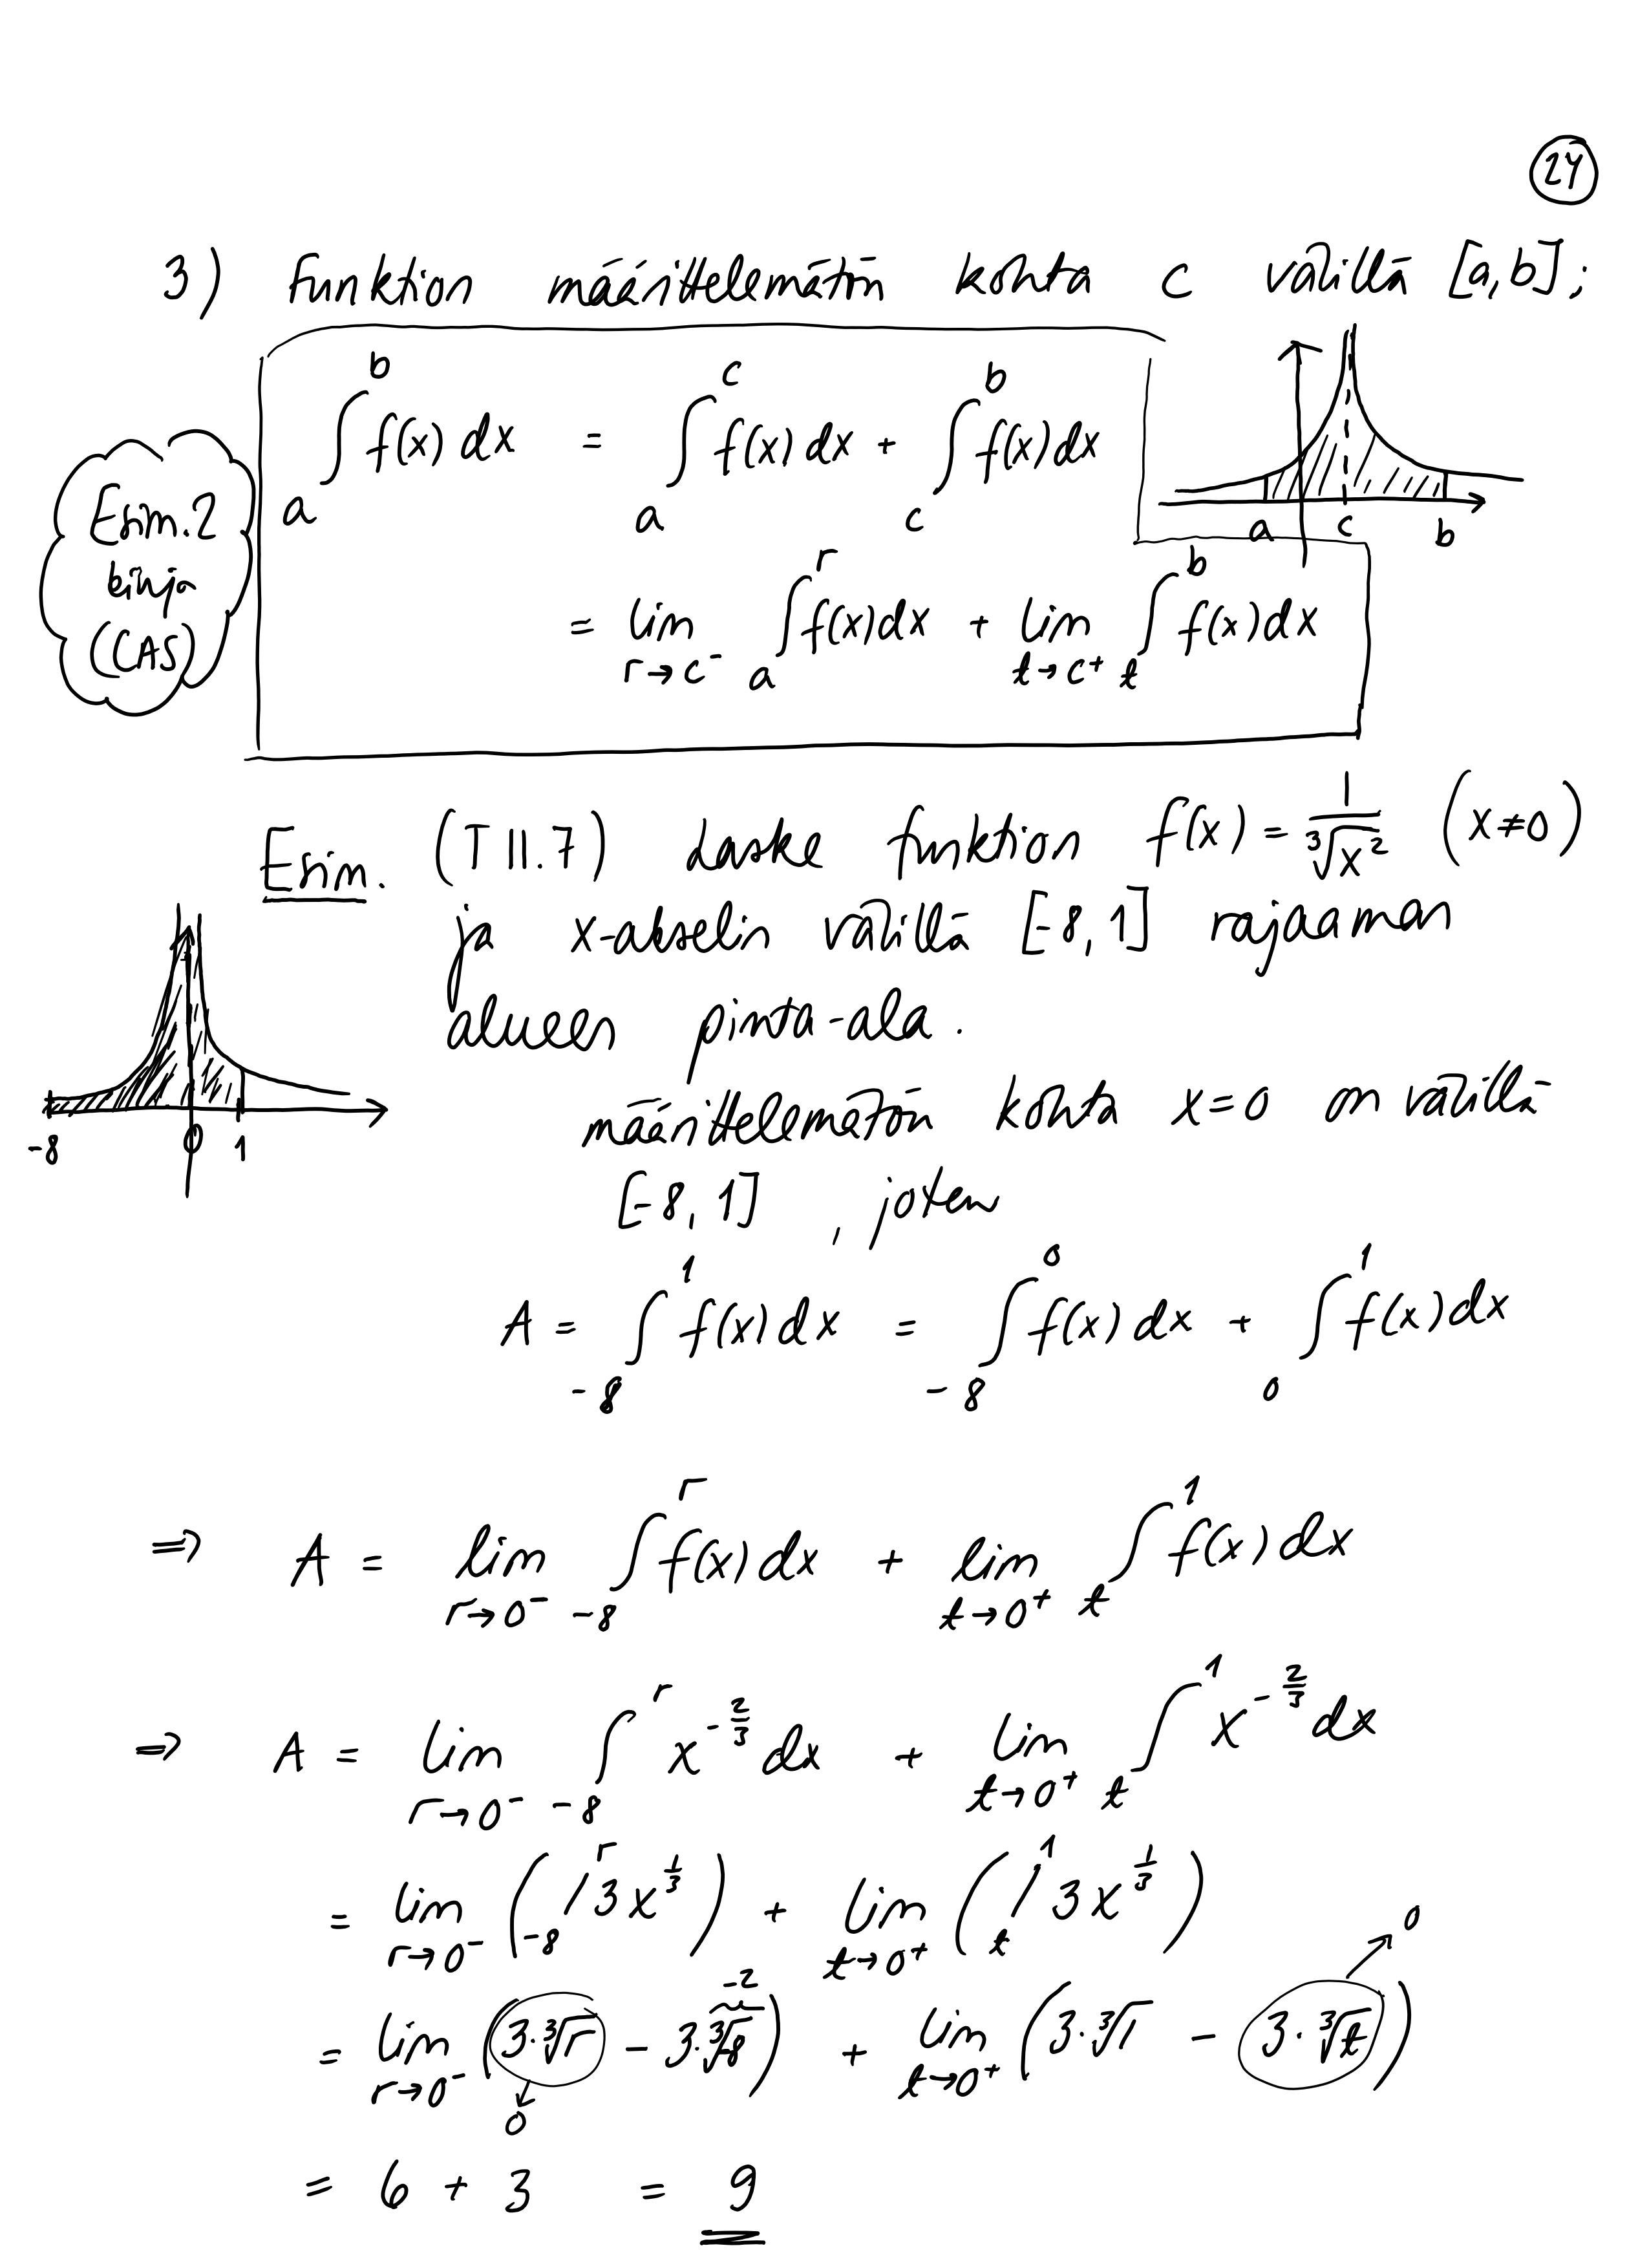 24
3) Funktion määrittelemätön kohta c välillä [a,b];
∫_a^b f(x) dx = ∫_a^c f(x) dx + ∫_c^b f(x) dx
a c b
Esim.2
kirja
(CAS)
= lim_{r→c⁻} ∫_a^r f(x) dx + lim_{t→c⁺} ∫_t^b f(x) dx
Esim. (T II.7) Laske funktion f(x) = 1/∛(x²) (x≠0)
ja x-akselin välillä [-8, 1] rajaaman
alueen pinta-ala.
-8 0 1
määrittelemätön kohta x=0 on välillä
[-8, 1], joten
A = ∫_{-8}^1 f(x) dx = ∫_{-8}^0 f(x) dx + ∫_0^1 f(x) dx
⇒ A = lim_{r→0⁻} ∫_{-8}^r f(x) dx + lim_{t→0⁺} ∫_t^1 f(x) dx
⇒ A = lim_{r→0⁻} ∫_{-8}^r x^{-2/3} dx + lim_{t→0⁺} ∫_t^1 x^{-2/3} dx
= lim_{r→0⁻} (/_{-8}^r 3x^{1/3}) + lim_{t→0⁺} (/_t^1 3x^{1/3})
= lim_{r→0⁻} (3·∛r - 3·∛-8) + lim_{t→0⁺} (3·∛1 - 3·∛t)
0 -2 0
= 6 + 3 = 9